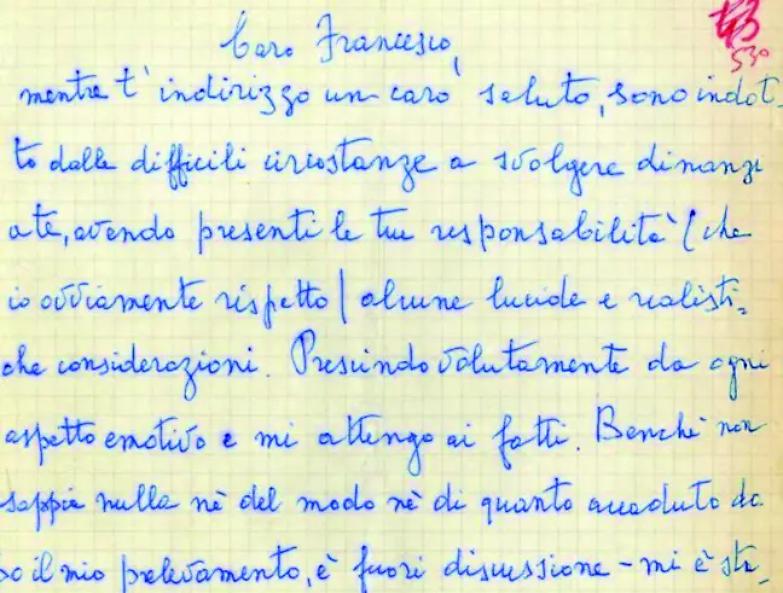 Caro Francesco,
530
mentre t'indirizzo un caro saluto, sono indot-
to dalle difficili circostanze a svolgere dinanzi
a te, avendo presenti le tue responsabilità (che
io ovviamente rispetto) alcune lucide e realisti-
che considerazioni. Prescindo volutamente da ogni
aspetto emotivo e mi attengo ai fatti. Benché non
sappia nulla né del modo né di quanto accaduto do
po il mio prelevamento, è fuori discussione - mi è sta-